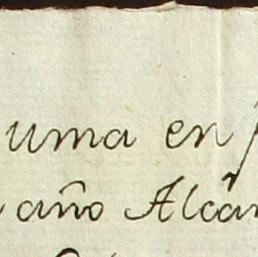 uma en
año Alcan